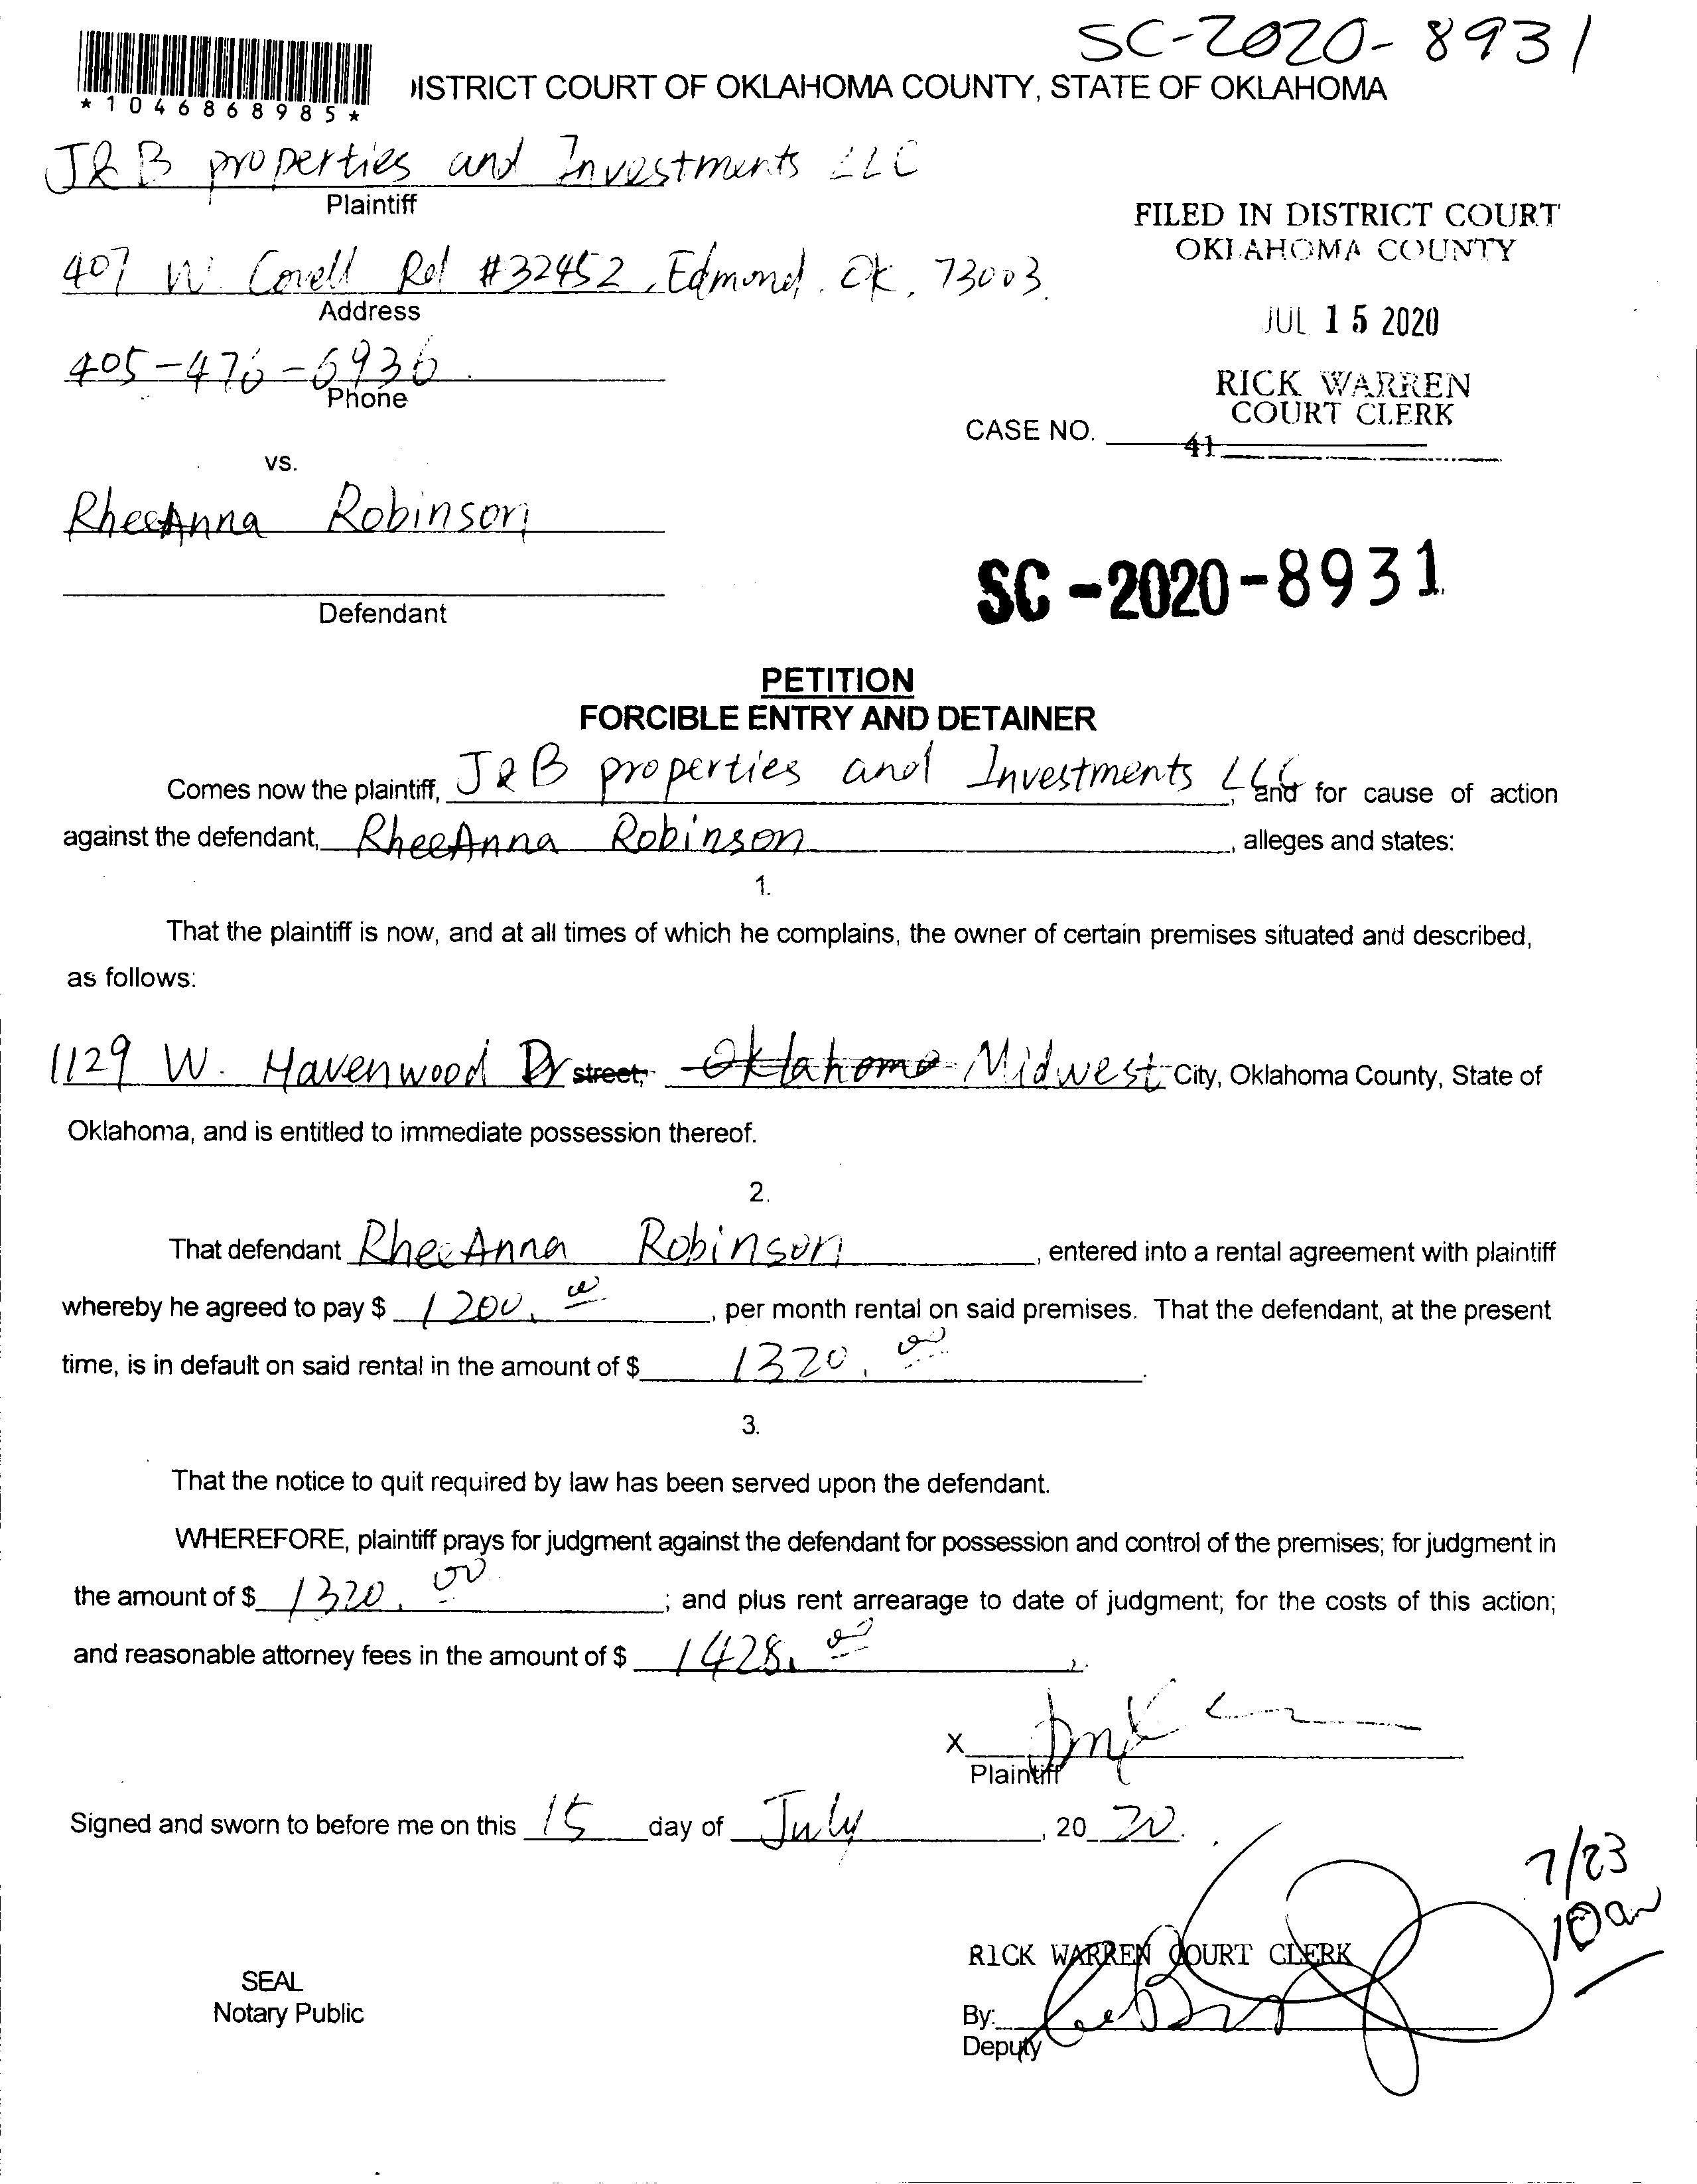 SC-2020-8931
*1046868985*
ISTRICT COURT OF OKLAHOMA COUNTY, STATE OF OKLAHOMA
J&B properties and Investments LLC
Plaintiff
FILED IN DISTRICT COURT
OKLAHOMA COUNTY
407 W. Covell Rd #32452, Edmond, OK, 73003.
Address
JUL 15 2020
405-476-6936
Phone
RICK WARREN
COURT CLERK
CASE NO.
41
vs.
RheeAnna Robinson
SC-2020-8931
Defendant
PETITION
FORCIBLE ENTRY AND DETAINER
Comes now the plaintiff, J&B properties and Investments LLC, and for cause of action
against the defendant, RheeAnna Robinson, alleges and states:
1.
That the plaintiff is now, and at all times of which he complains, the owner of certain premises situated and described,
as follows:
1129 W. Havenwood Dr street, Oklahoma Midwest City, Oklahoma County, State of
Oklahoma, and is entitled to immediate possession thereof.
2.
That defendant RheeAnna Robinson, entered into a rental agreement with plaintiff
whereby he agreed to pay $ 1200.00, per month rental on said premises. That the defendant, at the present
time, is in default on said rental in the amount of $ 1320.00.
3.
That the notice to quit required by law has been served upon the defendant.
WHEREFORE, plaintiff prays for judgment against the defendant for possession and control of the premises; for judgment in
the amount of $ 1320.00; and plus rent arrearage to date of judgment; for the costs of this action;
and reasonable attorney fees in the amount of $ 1428.00.
X
Plaintiff
Signed and sworn to before me on this 15 day of July, 20 20.
7/23
10am
RICK WARREN COURT CLERK
SEAL
Notary Public
By:
Deputy